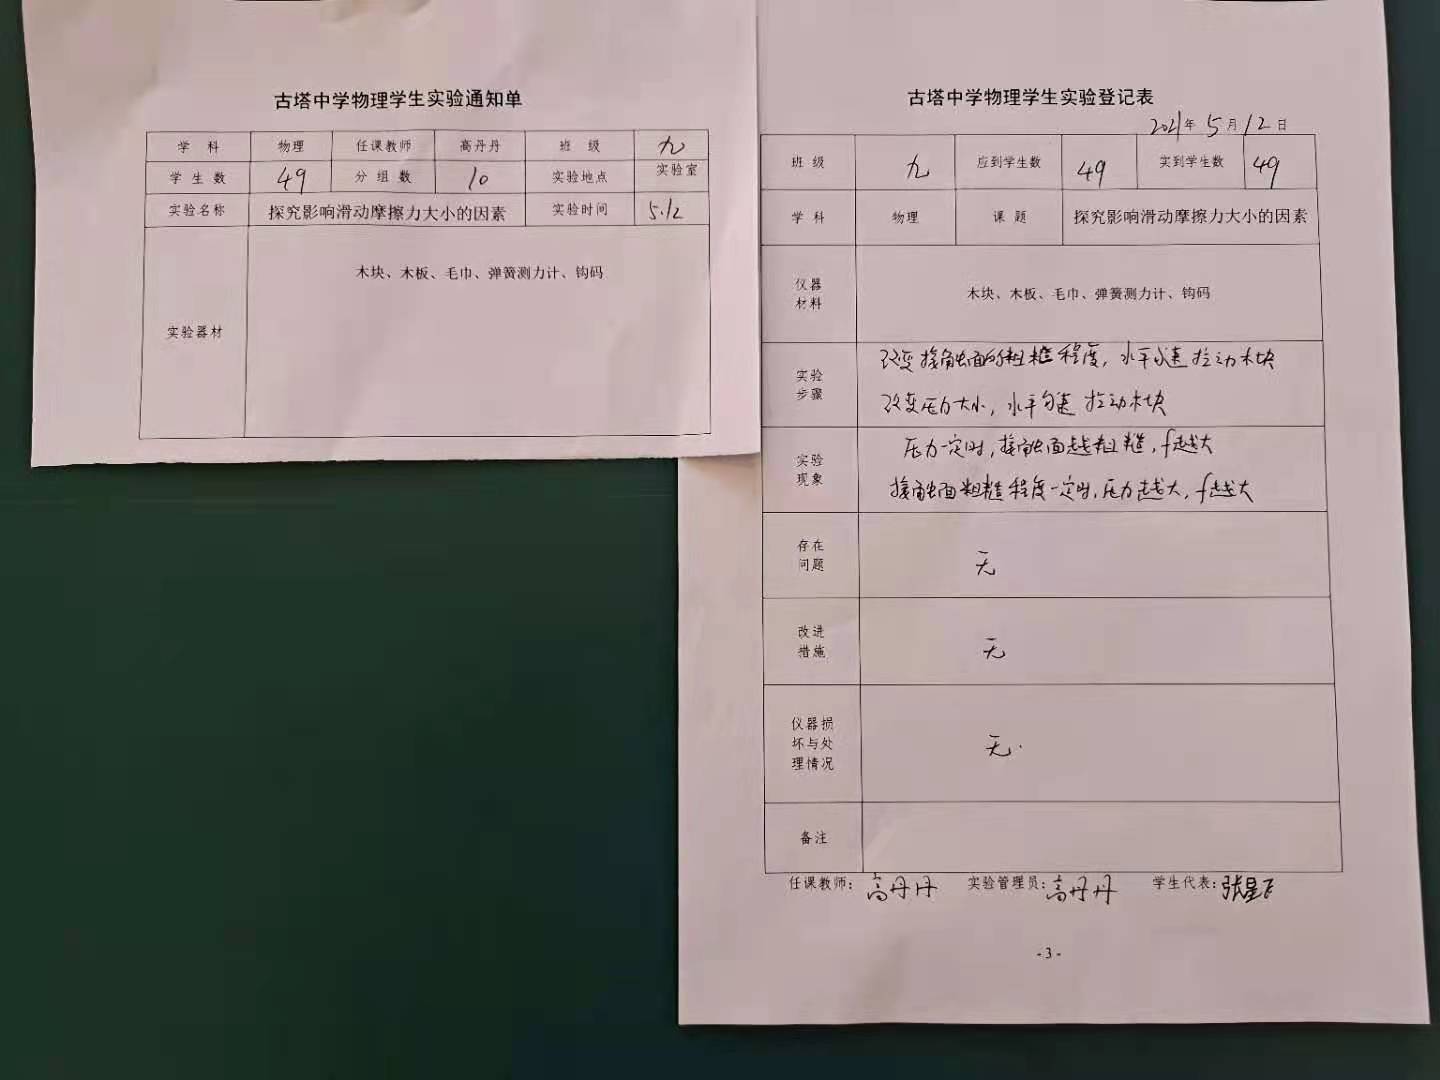 古塔中学物理学生实验通知单
学 科 物理 任课教师 高丹丹 班 级 九
学 生 数 49 分 组 数 10 实验地点 实验室
实验名称 探究影响滑动摩擦力大小的因素 实验时间 5.12
实验器材 木块、木板、毛巾、弹簧测力计、钩码
古塔中学物理学生实验登记表
2021年 5月 12日
班 级 九 应到学生数 49 实到学生数 49
学 科 物理 课 题 探究影响滑动摩擦力大小的因素
仪器
材料
木块、木板、毛巾、弹簧测力计、钩码
实验
步骤
改变接触面的粗糙程度，水平匀速拉动木块
改变压力大小，水平匀速拉动木块
实验
现象
压力一定时，接触面越粗糙，f越大
接触面粗糙程度一定时，压力越大，f越大
存在
问题
无
改进
措施
无
仪器损
坏与处
理情况
无.
备注
任课教师：高丹丹 实验管理员：高丹丹 学生代表：张星飞
- 3 -